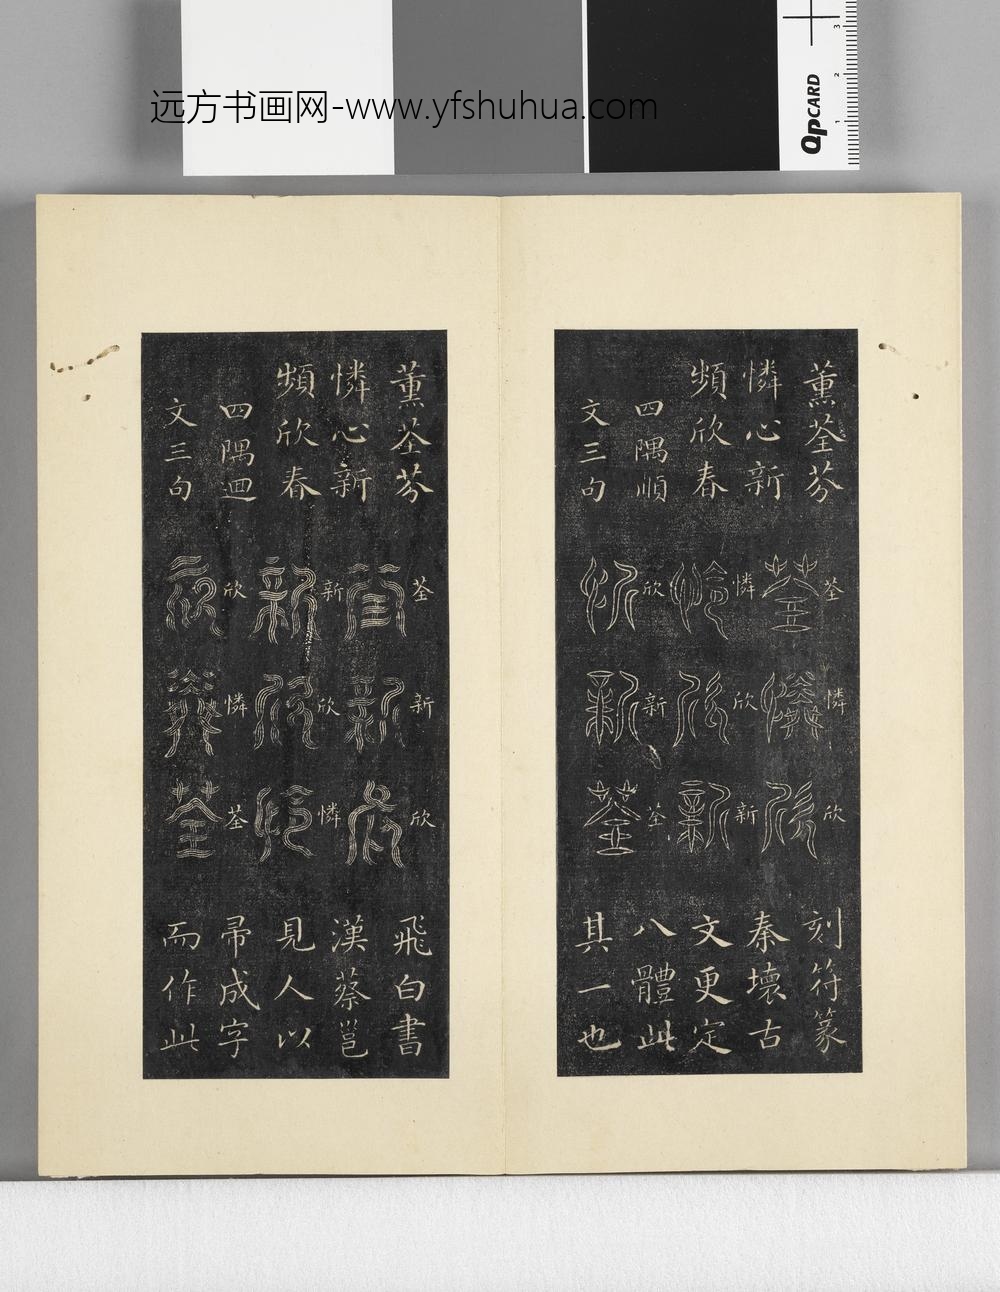 远方书画网-www.yfshuhua.com
QPCARD
1
2
3
薰荃芬
憐心新
頻欣春
四隅順
文三句
荃
憐
欣
憐
欣
新
欣
新
荃
刻符篆
秦壞古
文更定
八體此
其一也
薰荃芬
憐心新
頻欣春
四隅迴
文三句
荃
新
欣
新
欣
憐
欣
憐
荃
飛白書
漢蔡邕
見人以
帚成字
而作此